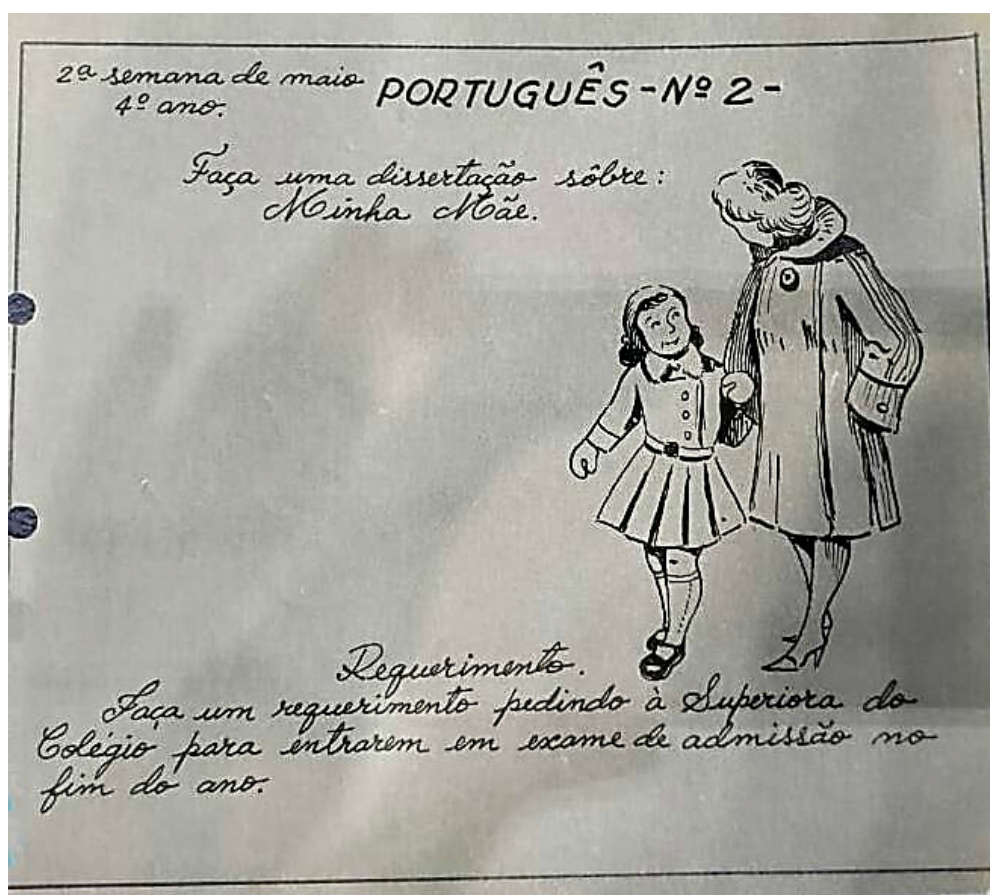 2ª semana de maio PORTUGUÊS - Nº 2 -
4º ano.
Faça uma dissertação sôbre:
Minha Mãe.
Requerimento.
Faça um requerimento pedindo à Superiora do
Colégio para entrarem em exame de admissão no
fim do ano.